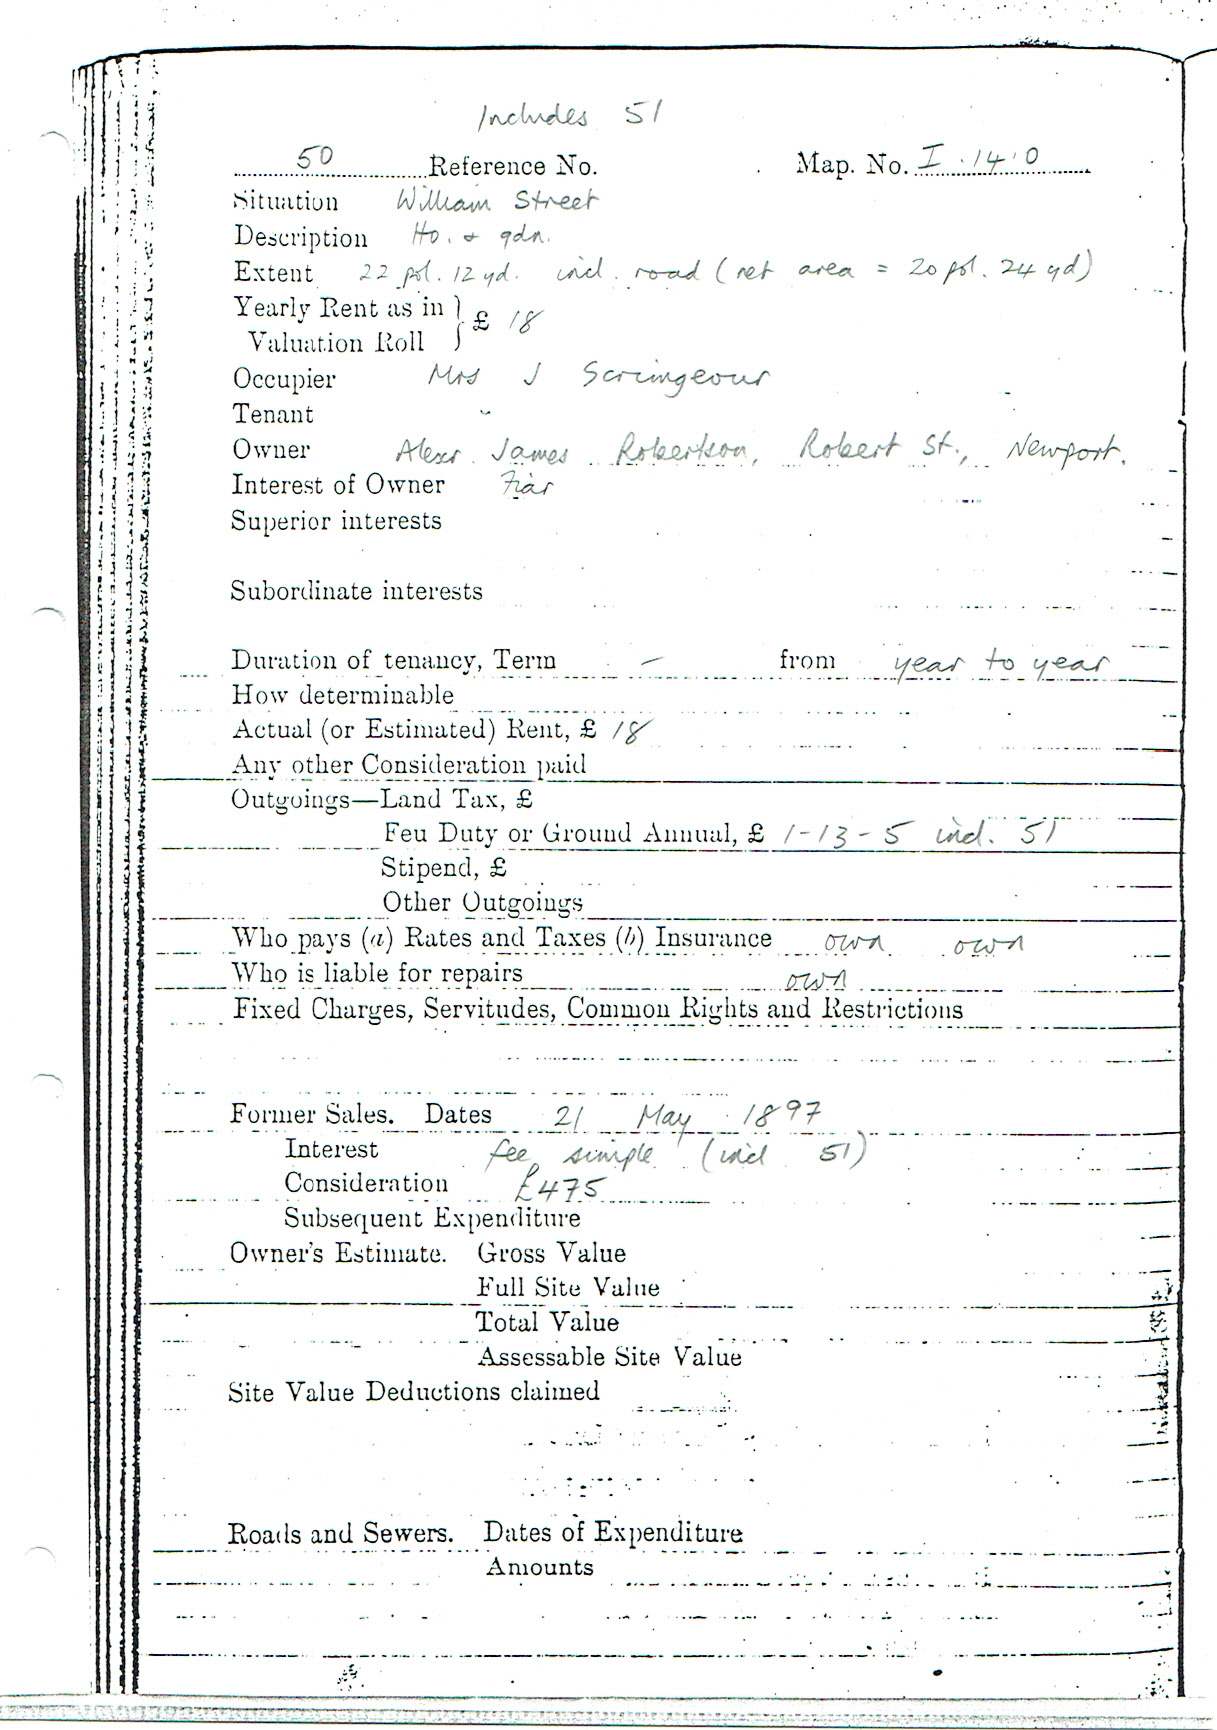 Includes 51
50 Reference No. Map. No. I.14.0
Situation William Street
Description Ho. & gdn.
Extent 22 pol. 12 yd. incl. road (net area = 20 pol. 24 yd)
Yearly Rent as in
Valuation Roll } £ 18
Occupier Mrs J Scrimgeour
Tenant "
Owner Alexr. James Robertson, Robert St., Newport.
Interest of Owner Fiar
Superior interests
Subordinate interests
Duration of tenancy, Term — from year to year
How determinable
Actual (or Estimated) Rent, £ 18
Any other Consideration paid
Outgoings—Land Tax, £
Feu Duty or Ground Annual, £ 1-13-5 incl. 51
Stipend, £
Other Outgoings
Who pays (a) Rates and Taxes (b) Insurance own own
Who is liable for repairs own
Fixed Charges, Servitudes, Common Rights and Restrictions
Former Sales. Dates 21 May 1897
Interest fee simple (incl 51)
Consideration £475
Subsequent Expenditure
Owner's Estimate. Gross Value
Full Site Value
Total Value
Assessable Site Value
Site Value Deductions claimed
Roads and Sewers. Dates of Expenditure
Amounts